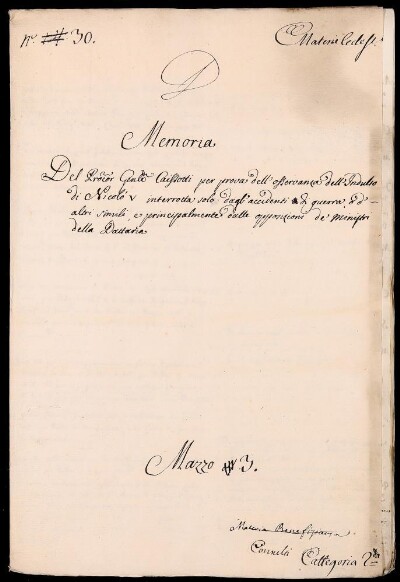 N.º 30.
Materie Eccles.
D
Memoria
Del Procor Genle Caissotti per prova dell'osservanza dell'Indulto
di Nicolò V interrotta solo dagl'accidenti di guerra, ed
altri simili, e principalmente dalle opposizioni de' Ministri
della Dattaria
Mazzo 3.
Materia Beneficiaria
Categoria 2.da